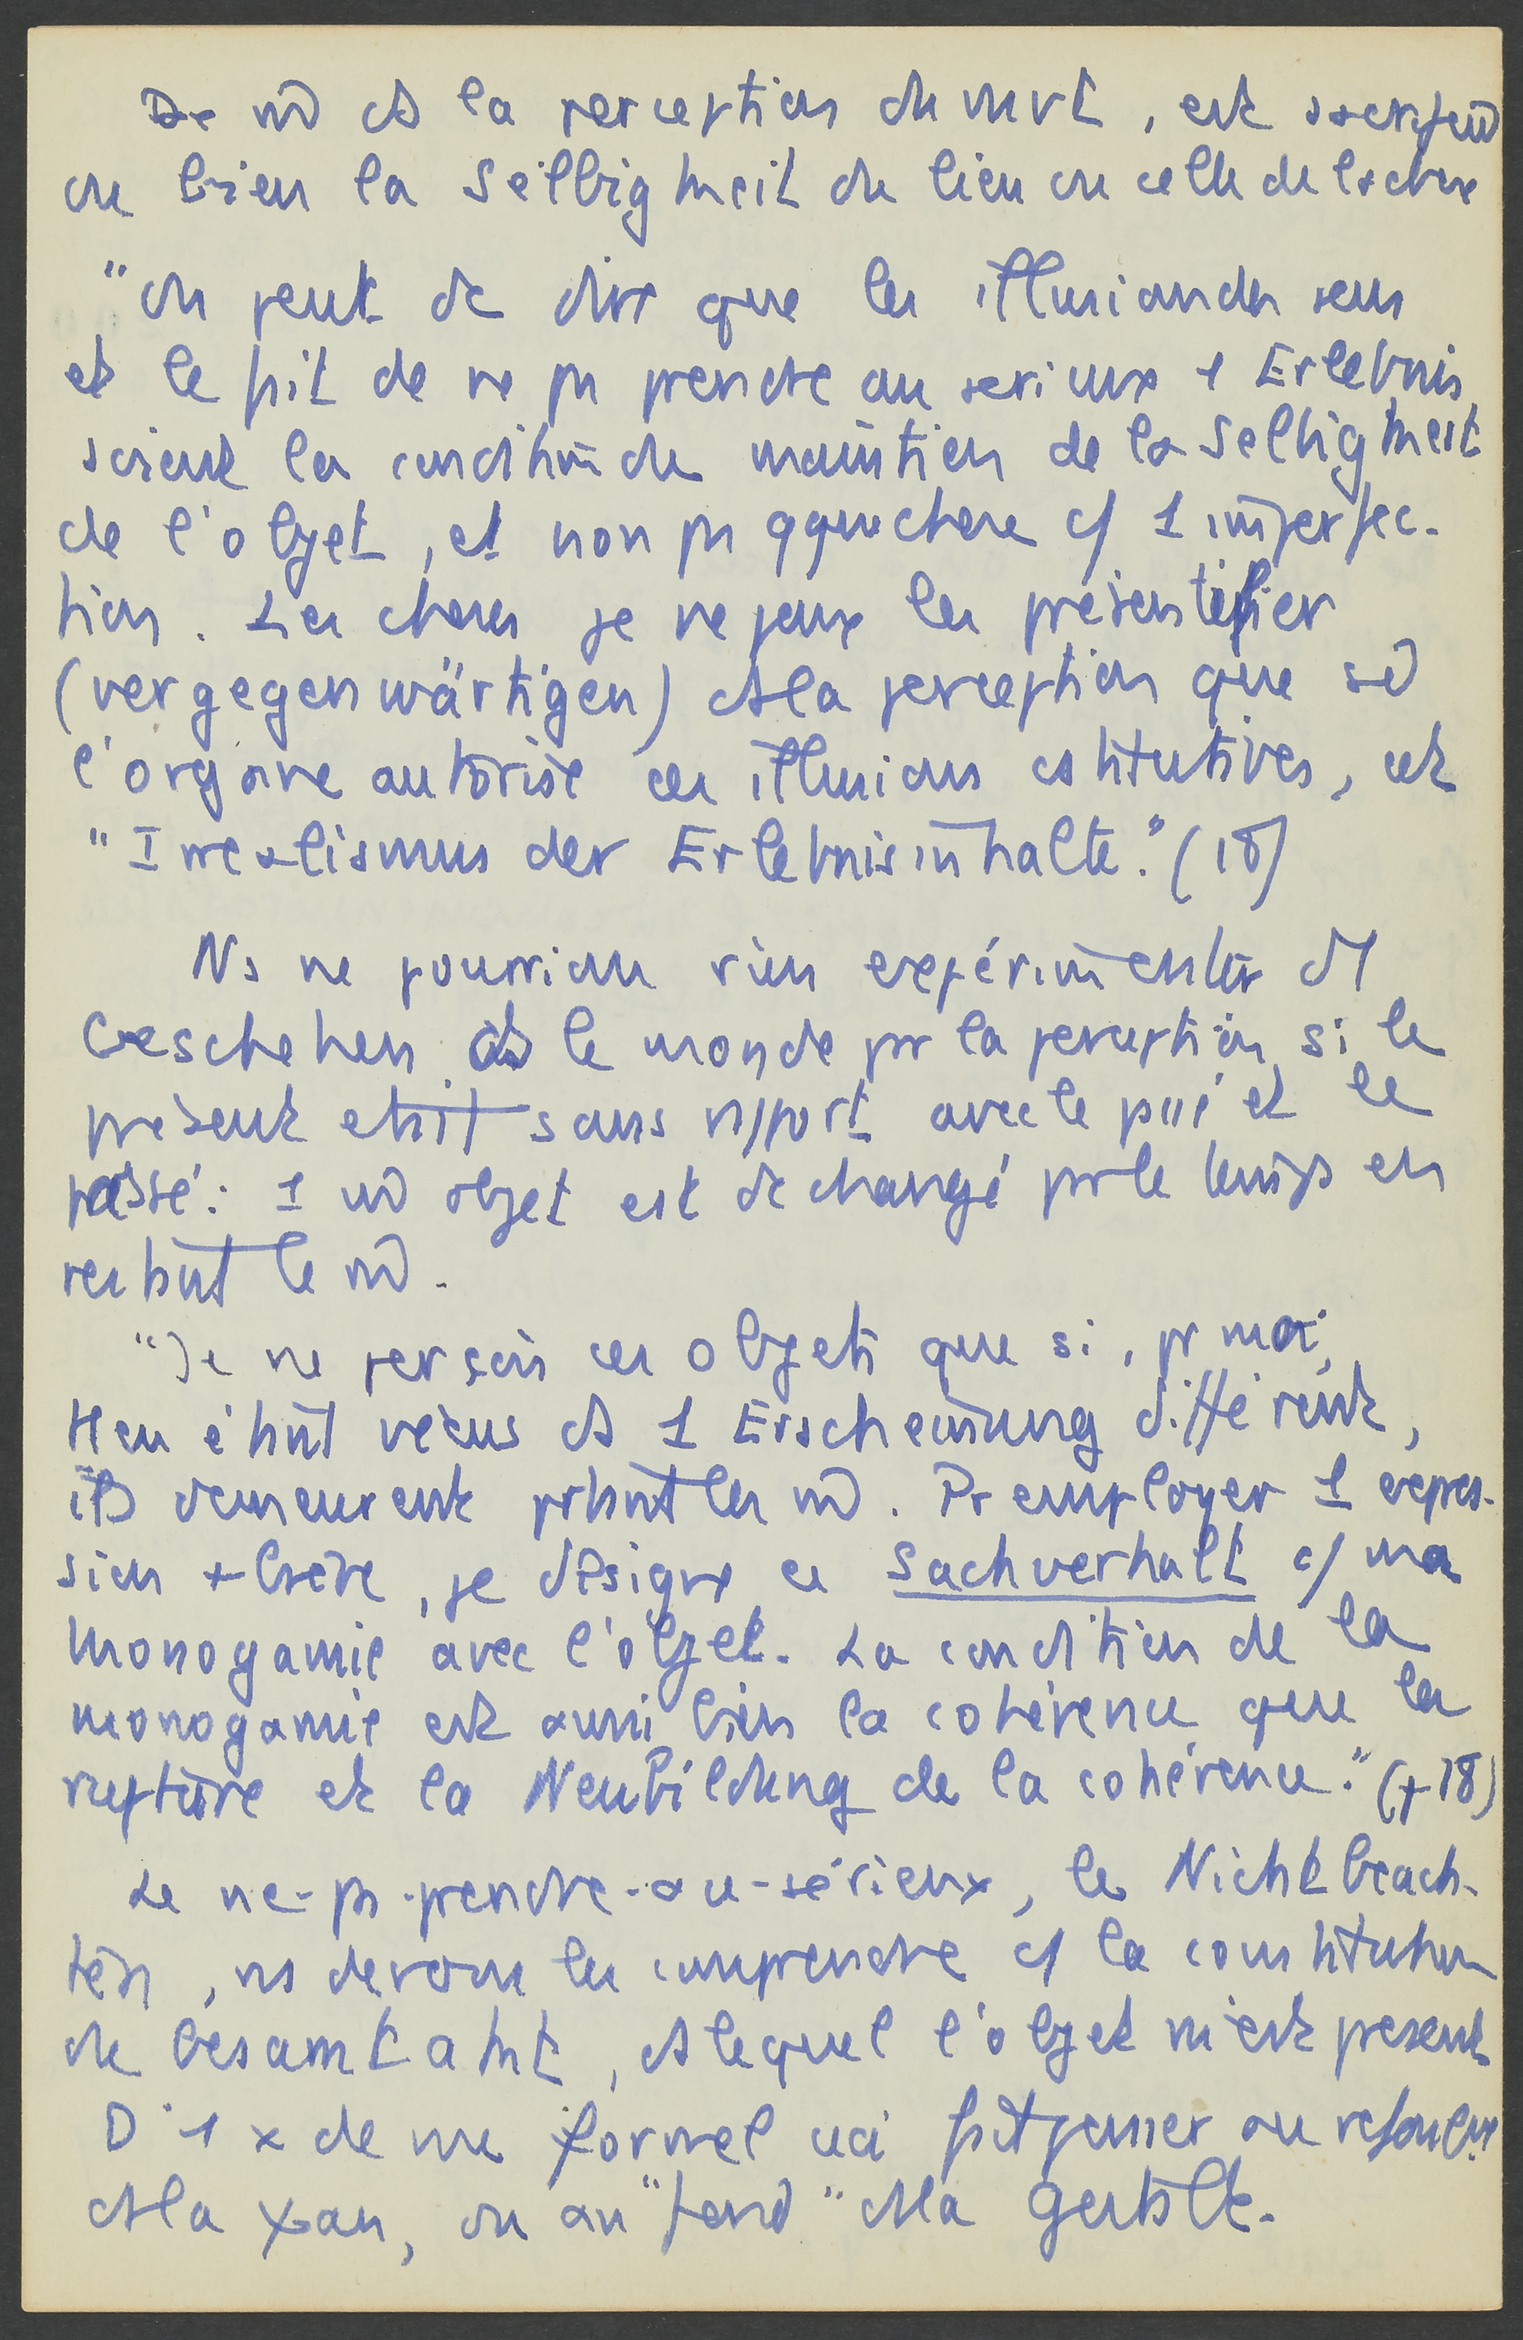 De m̂ ds la perception du mvt, est suspendu
ou bien la Selbigkeit du lieu ou celle de la chose
"On peut dc dire que les illusions des sens
et le fait de ne pas prendre au sérieux 1 Erlebnis
soient la condition du maintien de la Selbigkeit
de l'objet, et non pas qque chose c/ 1 imperfec-
tion. Les choses je ne peux les présentifier
(vergegenwärtigen) ds la perception que si
l'organe autorise ces illusions cstitutives, cet
"Irrealismus der Erlebnisinhalte." (18)
Ns ne pourrions rien expérimenter du
Geschehen ds le monde par la perception si le
présent était sans rapport avec le passé et le
passé : 1 m̂ objet est dc changé par le temps en
restant le m̂.
"Je ne perçois ces objets que si, pr moi,
tt en étant vécus ds 1 Erscheinung différente,
ils demeurent pourtant les m̂. Pr employer 1 expres-
sion + brève, je désigne ce Sachverhalt c/ ma
monogamie avec l'objet. La condition de la
monogamie est aussi bien la cohérence que la
rupture et la Neubildung de la cohérence." (p 18)
Le ne-pas-prendre-au-sérieux, le Nichtbeach-
ten, ns devons les comprendre c/ la constitution
du Gesamtakt, ds lequel l'objet m'est présent
D'1 x de vue formel ceci fait penser au refoulement
ds la Ψan, ou au "fond" ds la Gestalt.